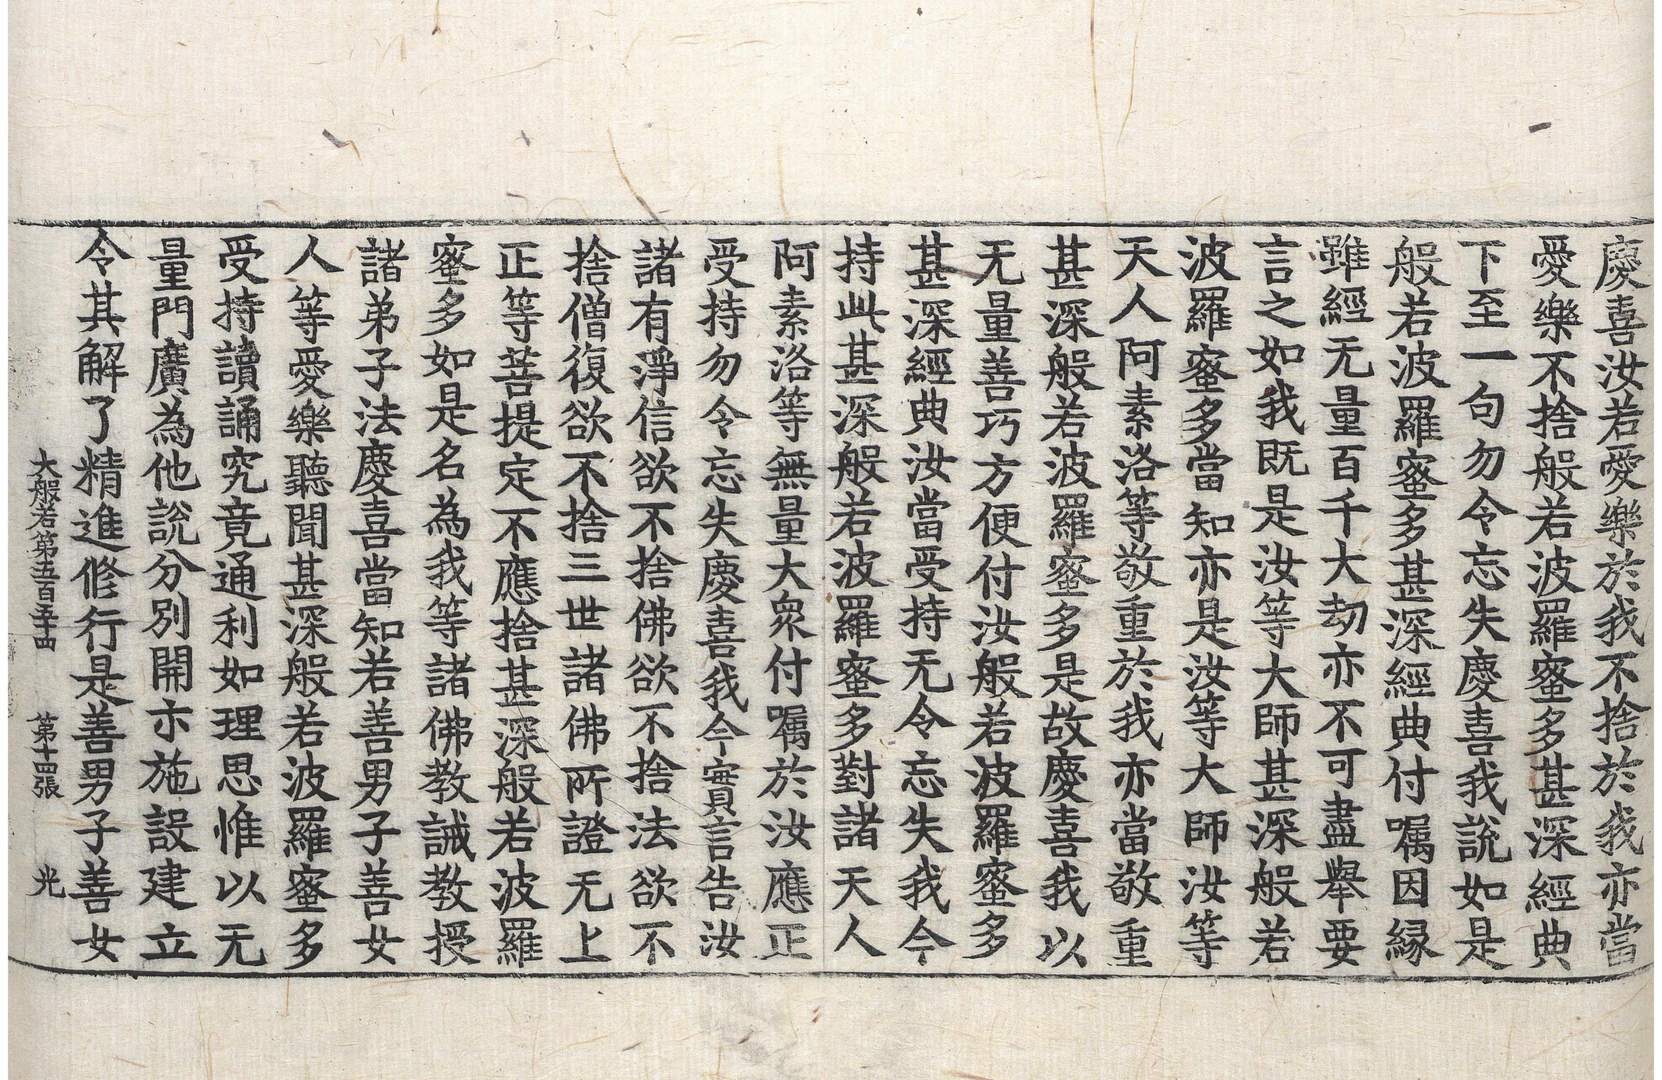 慶喜汝若愛樂於我不捨於我亦當
愛樂不捨般若波羅蜜多甚深經典
下至一句勿令忘失慶喜我說如是
般若波羅蜜多甚深經典付囑因緣
雖經无量百千大劫亦不可盡舉要
言之如我既是汝等大師甚深般若
波羅蜜多當知亦是汝等大師汝等
天人阿素洛等敬重於我亦當敬重
甚深般若波羅蜜多是故慶喜我以
无量善巧方便付汝般若波羅蜜多
甚深經典汝當受持无令忘失我今
持此甚深般若波羅蜜多對諸天人
阿素洛等無量大衆付囑於汝應正
受持勿令忘失慶喜我今實言告汝
諸有淨信欲不捨佛欲不捨法欲不
捨僧復欲不捨三世諸佛所證无上
正等菩提定不應捨甚深般若波羅
蜜多如是名為我等諸佛教誡教授
諸弟子法慶喜當知若善男子善女
人等愛樂聽聞甚深般若波羅蜜多
受持讀誦究竟通利如理思惟以无
量門廣為他說分別開示施設建立
令其解了精進修行是善男子善女
大般若第五百五十四 第十四張 光